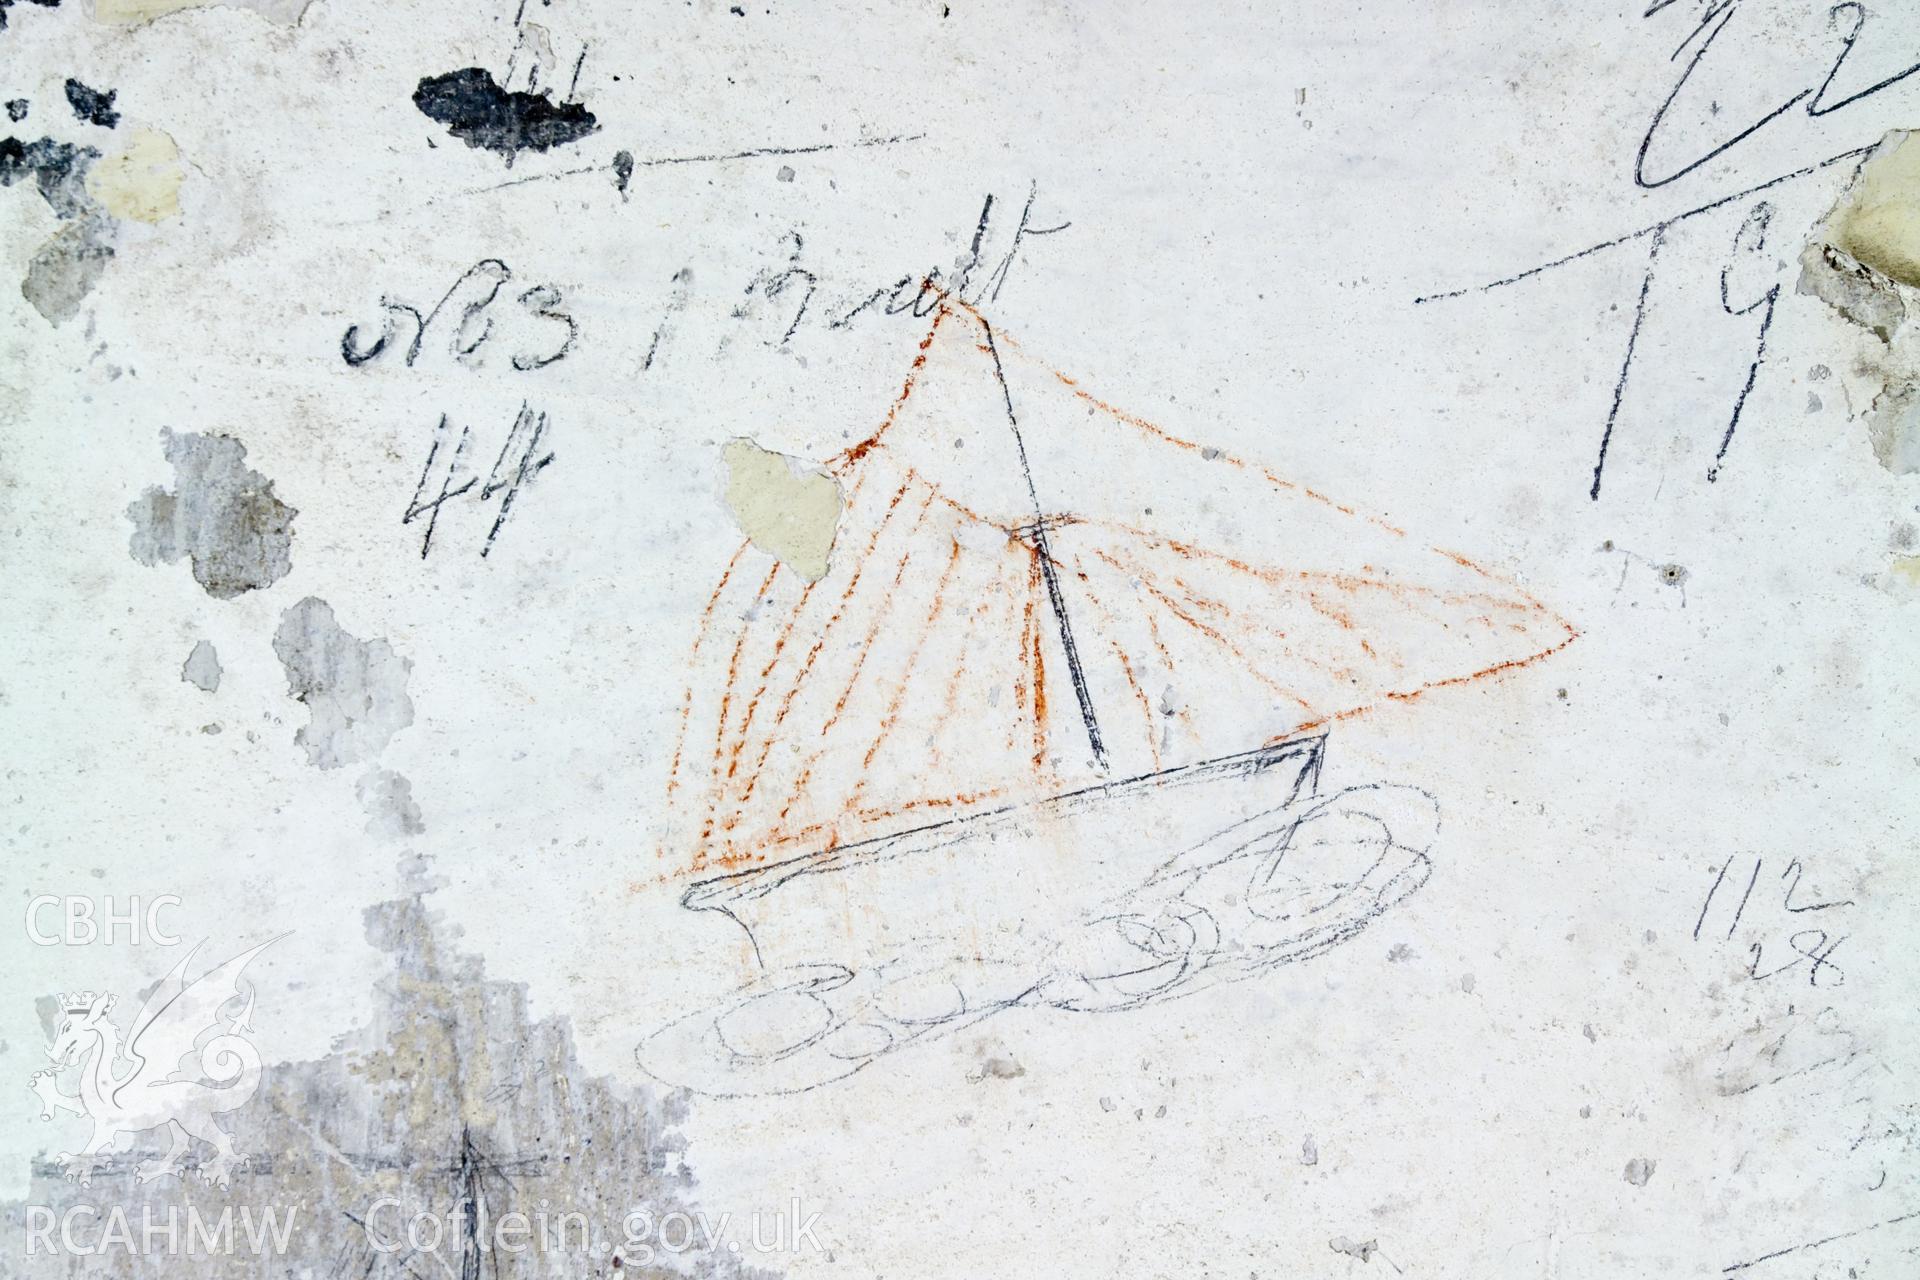 22
19
No 3 1
44
112
28
CBHC
RCAHMW Coflein.gov.uk